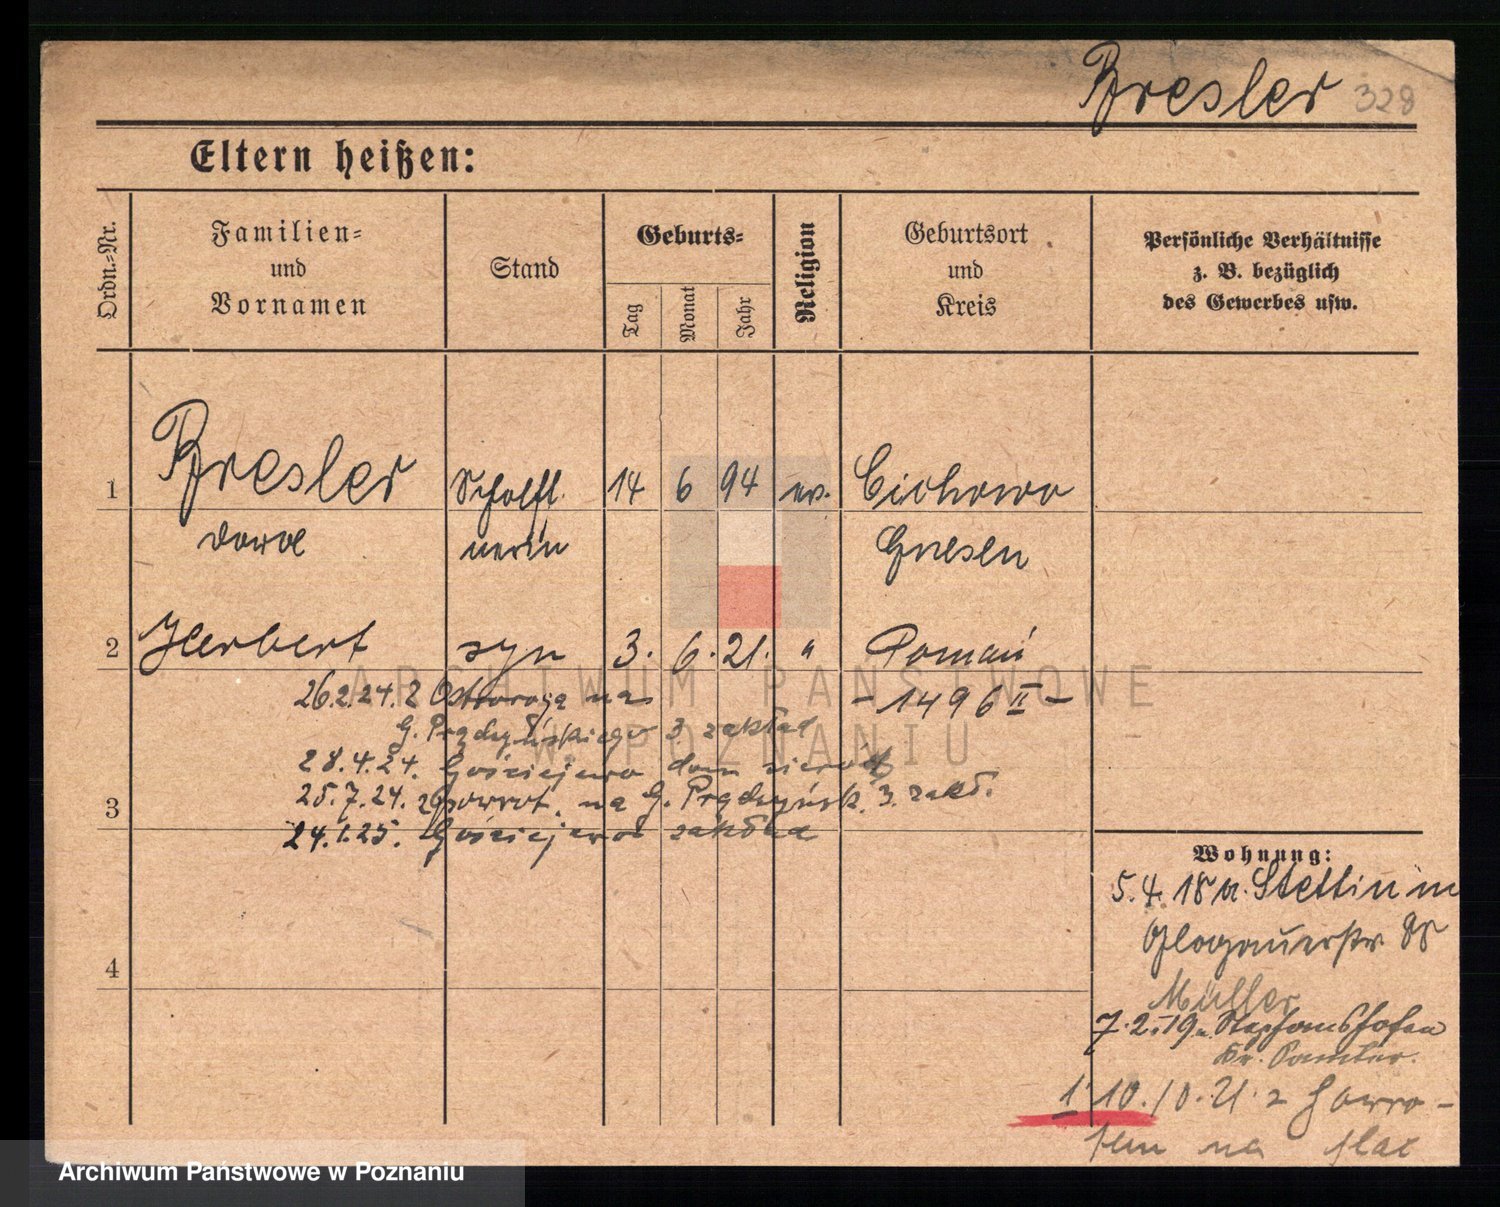 Bresler 328
Eltern heißen:
Ordn.-Nr.
Familien-
und
Vornamen
Stand
Geburts-
Tag
Monat
Jahr
Religion
Geburtsort
und
Kreis
Persönliche Verhältnisse
z. B. bezüglich
des Gewerbes usw.
1 Bresler 14 6 94 ev. Cichowo
nerin Gnesen
2 Herbert syn 3. 6. 21. " Poznań
26.2.24. Z Ostroroga na
- 1496 II -
G. Prądzyńskiego 3 zakład
28.4.24. Gościejewo dom sierót
25.7.24. z powrot. na G. Prądzyńsk. 3. zakł.
3
24.1.25. Gościejewo zakład
Wohnung:
5.4.18 a. Stettin in
Glogauerstr 88
4
Müller
7.2.19 n. Stephanshofen
Kr. Samter.
1 10.10.21 z powro-
tem na
ARCHIWUM PAŃSTWOWE
W POZNANIU
Archiwum Państwowe w Poznaniu